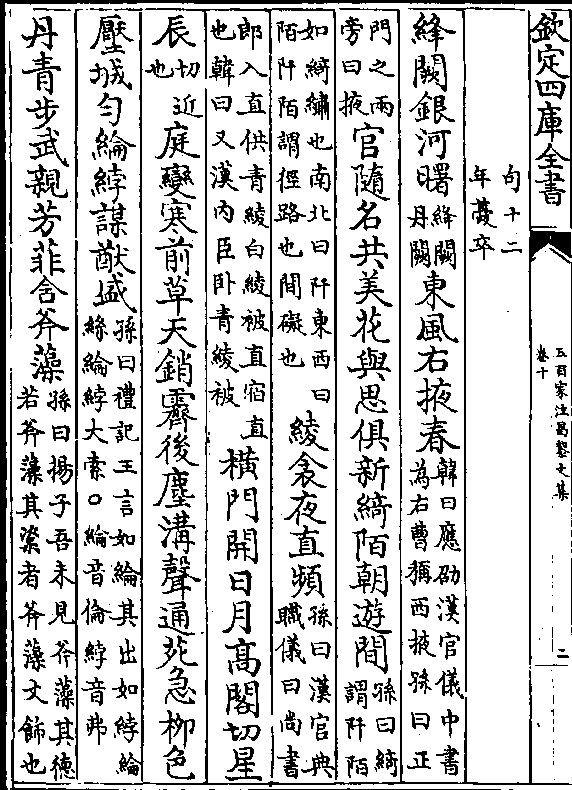 欽定四庫全書
五百家注昌黎文集
卷十
二
句十二
年薨卒
絳闕銀河曙絳闕丹闕東風右掖春韓曰應劭漢官儀中書為右曹稱西掖孫曰正
門之兩旁曰掖官隨名共美花與思俱新綺陌朝遊間孫曰綺謂阡陌
如綺繡也南北曰阡東西曰陌阡陌謂徑路也間礙也綾衾夜直頻孫曰漢官典職儀曰尚書
郎入直供青綾白綾被直宿直也韓曰又漢內臣臥青綾被橫門開日月高閣切星
辰切近也庭變寒前草天銷霽後塵溝聲通苑急柳色
壓城勻綸綍謀猷盛孫曰禮記王言如綸其出如綍綸絲綸綍大索○綸音倫綍音弗
丹青步武親芳菲含斧藻孫曰揚子吾未見斧藻其德若斧藻其楶者斧藻文飾也